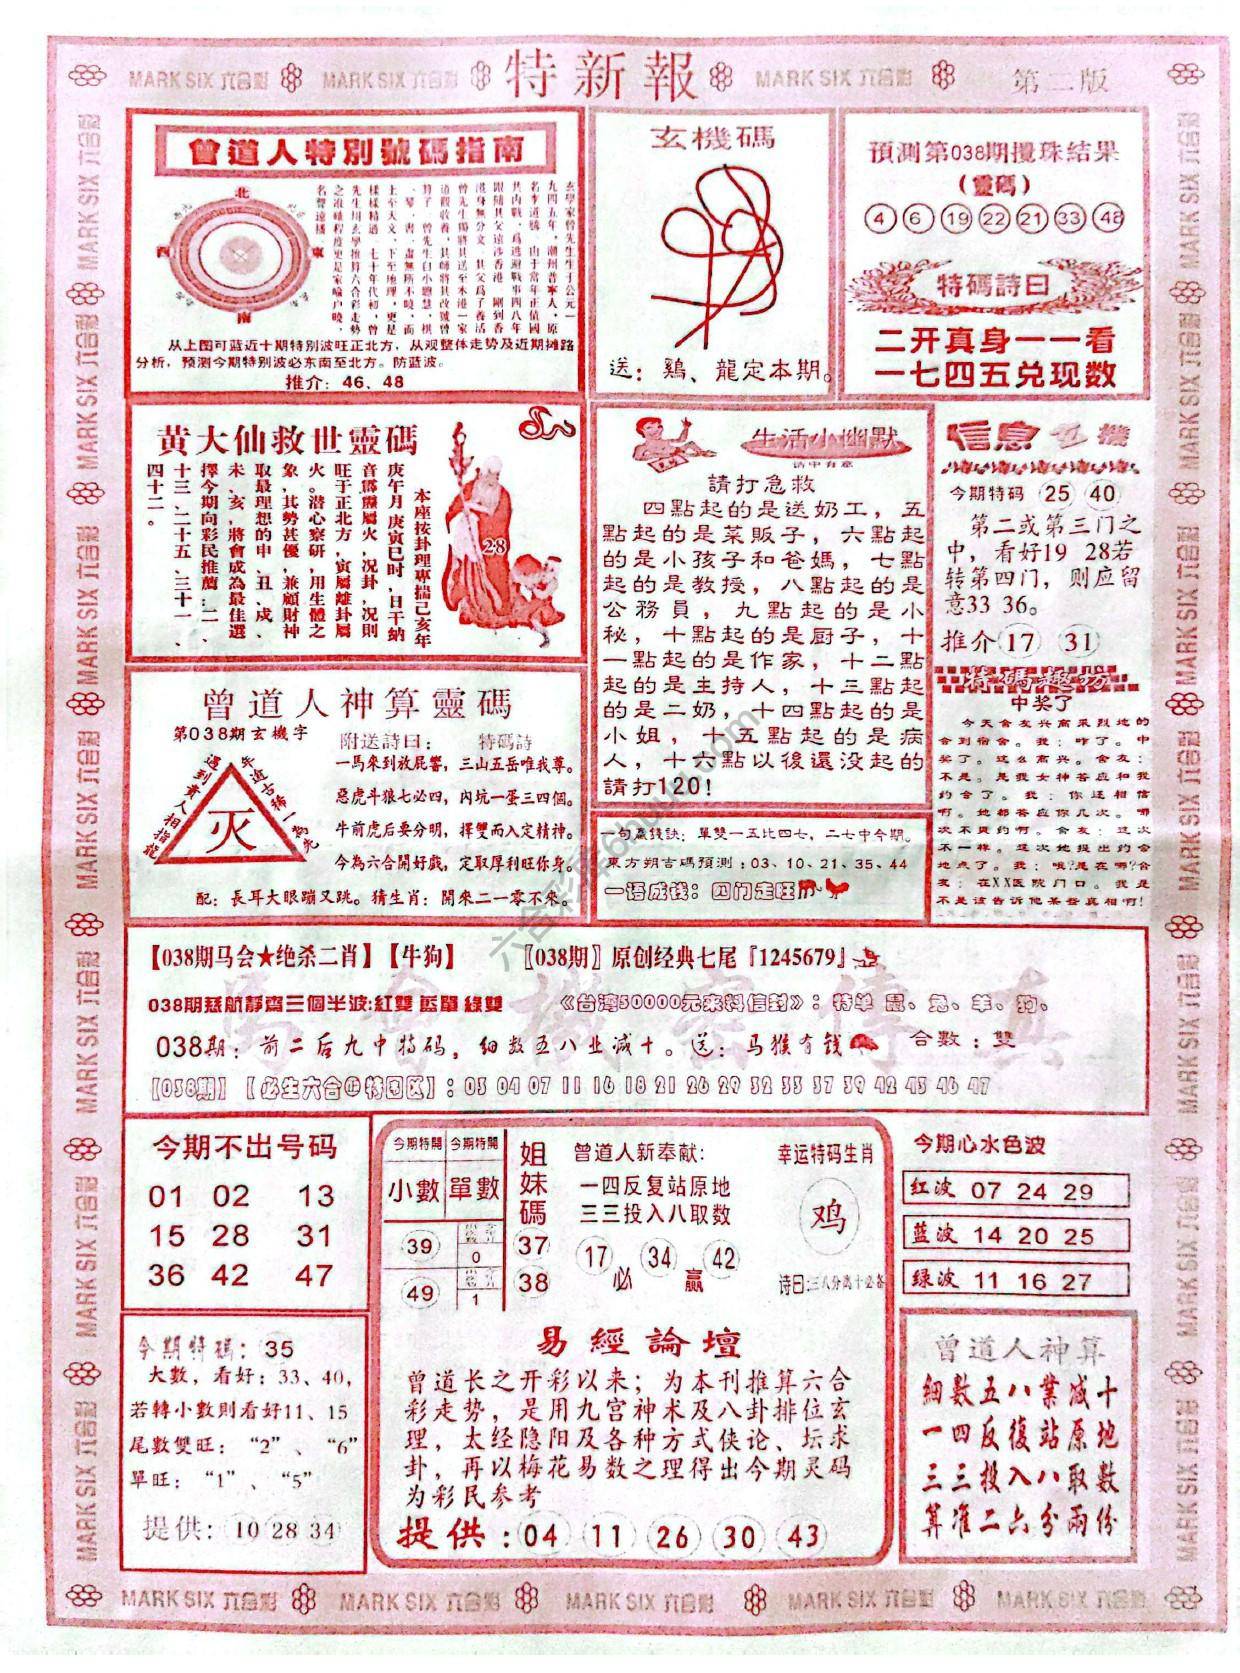 MARK SIX 六合彩
MARK SIX 六合彩
特新報
MARK SIX 六合彩
第二版
曾道人特別號碼指南
北
西
東
南
玄學家曾先生生于公元一
九四五年，潮州普寧人，原
名李道號，由于當年正值國
共內戰，爲逃避戰事四八年
跟隨其父遠涉香港，剛到香
港身無分文，其父爲了養活
從上图可蓝近十期特别波旺正北方，从观整体走势及近期摊路
分析，预测今期特别波必东南至北方。防蓝波。
推介：46、48
玄機碼
送：鷄、龍定本期。
預測第038期攪珠結果
(靈碼)
4 6 19 22 21 33 48
特碼詩曰
二开真身一一看
一七四五兑现数
黄大仙救世靈碼
本座按卦理專揣己亥年
庚午月 庚寅巳时，日干納
音霹靂屬火，况卦，况則
旺于正北方，寅屬離卦屬
火。潜心察研，用生體之
象，其勢甚優，兼顧財神
取最理想的申、丑、戍、
未、亥，將會成為最佳選
擇今期向彩民推薦：二、
十三、二十五、三十一、
四十二。
28
生活小幽默
請打急救
四點起的是送奶工，五
點起的是菜販子，六點起
的是小孩子和爸媽，七點
起的是教授，八點起的是
公務員，九點起的是小
秘，十點起的是厨子，十
一點起的是作家，十二點
起的是主持人，十三點起
的是二奶，十四點起的是
小姐，十五點起的是病
人，十六點以後還没起的
請打120！
信息玄機
今期特码 25 40
第二或第三门之
中，看好19 28若
转第四门，则应留
意33 36。
推介 17 31
特碼趣坊
中奖了
今天舍友兴高采烈地的
会到宿舍。我：咋了。中
奖了。这么高兴。舍友：
不是。是我女神答应和我
约会了。我：你还相信
啊。她都答应你几次。哪
次不爽约啊。舍友：这次
不一样。这次她提出约会
地点了。我：哦?是在哪?舍
友：在XX医院门口。我是
不是该告诉他某些真相啊!
曾道人神算靈碼
第038期玄機字
遇到貴人相指龍
年逾古稀一富先
灭
附送詩曰： 特碼詩
一馬來到放屁響，三山五岳唯我尊。
惡虎斗狼七必四，内坑一蛋三四個。
牛前虎后要分明，擇雙而入定精神。
今為六合開好戲，定取厚利旺你身。
配：長耳大眼蹦又跳。猜生肖：開來二一零不來。
一句贏錢訣：單雙一五比四七，二七中今期。
東方朔吉碼預測：03、10、21、35、44
一语成钱：四门走旺
【038期马会★绝杀二肖】【牛狗】
〖038期〗原创经典七尾『1245679』
038期慈航靜齋三個半波:紅雙 藍單 綠雙
《台湾50000元来料信封》：特单 鼠、兔、羊、狗、
038期：前二后九中特码，细数五八业减十。送：马猴有钱
合數：雙
【038期】【必生六合㊣特围区】：03 04 07 11 16 18 21 26 29 32 33 37 39 42 43 46 47
今期不出号码
01 02 13
15 28 31
36 42 47
今期特開 今期特開
小數 單數
39
0
49
1
姐妹碼
37
38
曾道人新奉献:
一四反复站原地
三三投入八取数
17 34 42
必 赢
幸运特码生肖
鸡
诗曰:三八分离十必备
今期心水色波
红波 07 24 29
蓝波 14 20 25
绿波 11 16 27
今期特碼：35
大數，看好：33、40，
若轉小數則看好11、15
尾數雙旺：“2”、“6”
單旺：“1”、“5”
提供：10 28 34
易經論壇
曾道长之开彩以来；为本刊推算六合
彩走势，是用九宫神术及八卦排位玄
理，太经隐阳及各种方式侠论、坛求
卦，再以梅花易数之理得出今期灵码
为彩民参考
提供：04 11 26 30 43
曾道人神算
細數五八業减十
一四反復站原地
三三投入八取數
算准二六分兩份
MARK SIX 六合彩
MARK SIX 六合彩
MARK SIX 六合彩
MARK SIX 六合彩
MARK SIX 六合彩